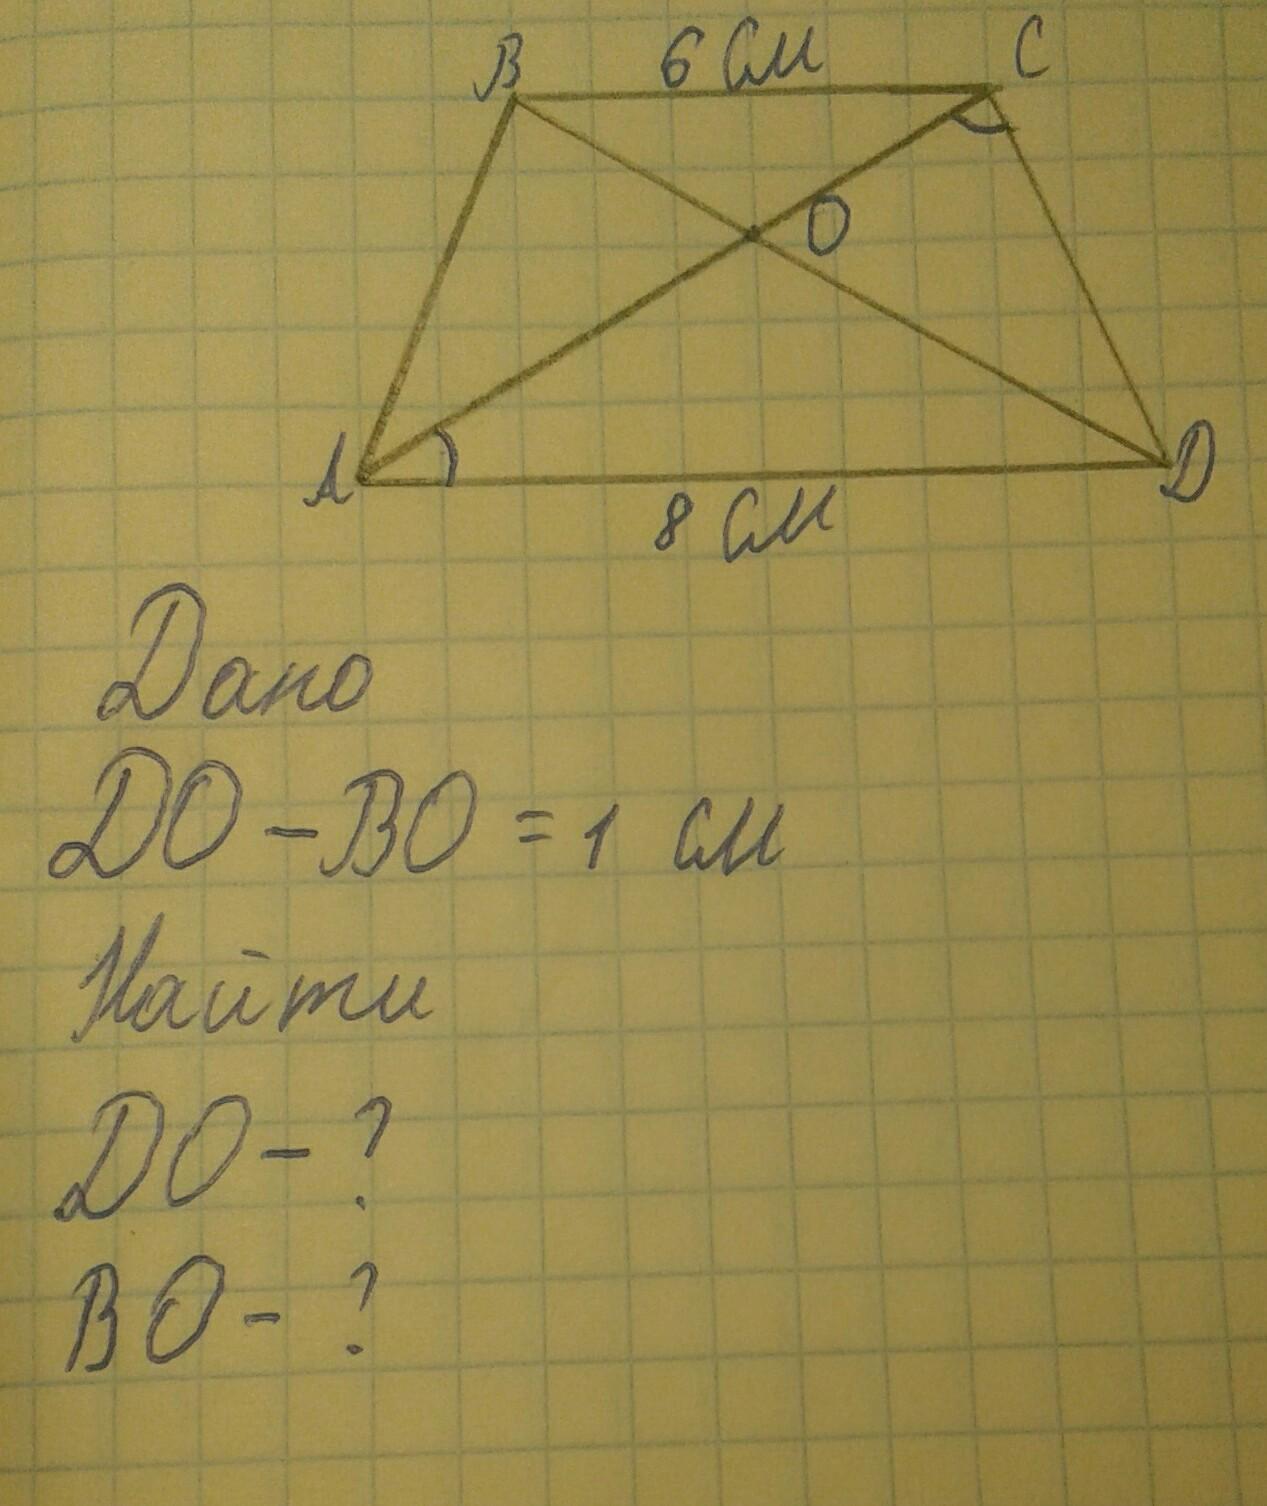 B 6 см C
O
A D
8 см
Дано
DO - BO = 1 см
Найти
DO - ?
BO - ?